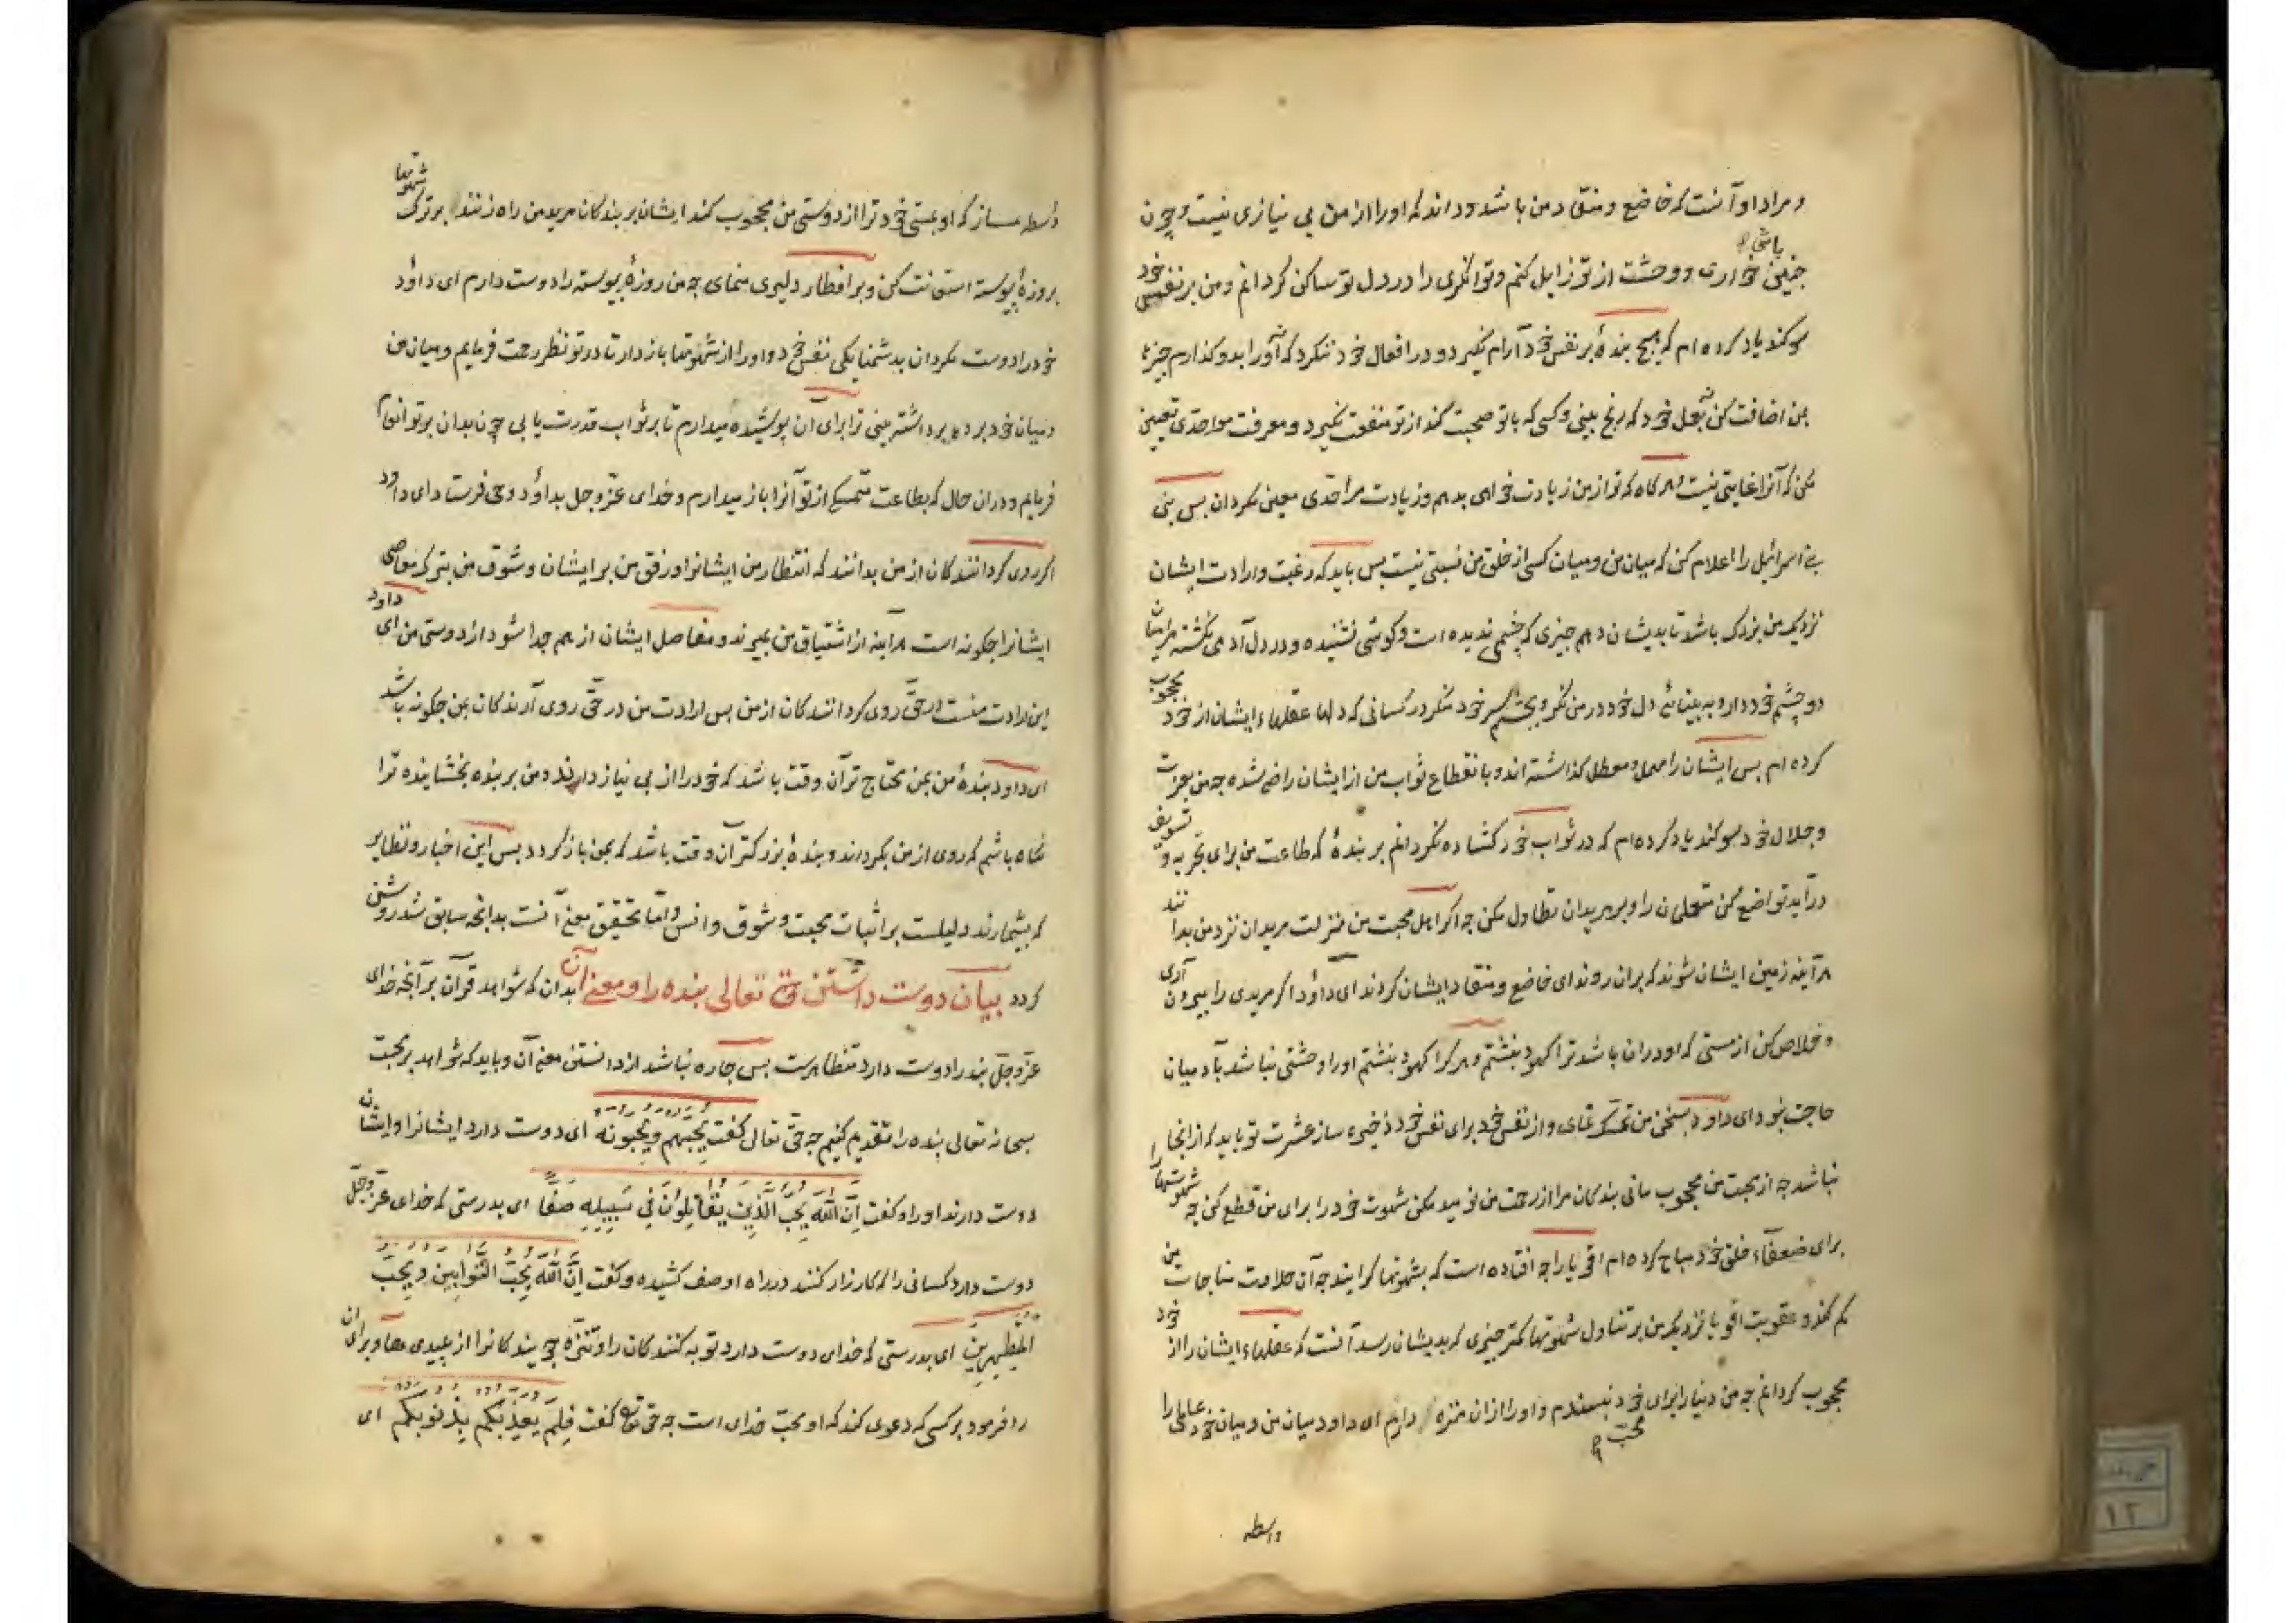 و مراد او آنست که خاضع و منقاد من باشد و داند که او را از من بی نیازی نیست و چون
باشی
چنین خواری و وحشت از تو زایل کنم و توانگری را در دل تو ساکن گردانم و من بر نفس خود
سوکند یاد کرده ام که هیچ بندهٔ بر نفس خود آرام نگیرد و در افعال خود ننگرد که او را بدو گذارم چیزها
بمن اضافت کن بعمل خود که رنج بینی و کسی که با تو صحبت کند از تو منفعت نگیرد و معرفت مرا حدی تعیین
مکن که آنرا غایتی نیست هرگاه که تو از من زیادت خواهی بدهم و زیادت مرا حدی معین مگردان پس بنی
بنی اسرائیل را اعلام کن که میان من و میان کسی از خلق من نسبتی نیست پس باید که رغبت و ارادت ایشان
نزدیک من بزرگ باشد تا بدیشان دهم چیزی که چشمی ندیده است و گوشی نشنیده و در دل آدمی نگشته مرا میان
دو چشم خود دار و به بینائی دل خود در من نگر و بچشم سر خود منگر در کسانی که دلها و عقلهاء ایشان از خود محجوب
کرده ام پس ایشان را مهمل و معطل گذاشته اند و بانقطاع ثواب من از ایشان راضی شده چه من بعزت
و جلال خود سوکند یاد کرده ام که در ثواب خود گشاده نگردانم بر بندهٔ که طاعت من برای تجربه و تسویف
درآید تواضع کن متعلمان را و بر مریدان تطاول مکن چه اگر اهل محبت من منزلت مریدان نزد من بدانند
هرآینه زمین ایشان شوند که بران روند ای خاضع و منقاد ایشان گردند ای داؤد اگر مریدی را بیرون آری
و خلاص کن از مستی که او دران باشد ترا کهبد بنشتم و هر کرا کهبد بنشتم او را وحشتی نباشد باد میان
حاجت نبود ای داود بسخن من تمسک نمای و از نفس خود برای نفس خود ذخیره ساز عشرت تو باید که از انجا
نباشد چه از محبت من محجوب مانی بندگان مرا از رحمت من نومید مکن شهوت خود را برای من قطع کن چه شهوتها را
برای ضعفاء خلق خود مباح کرده ام اقویا را چه افتاده است که بشهوتها گرایند چه آن حلاوت مناجات من
کم کند و عقوبت اقویا نزدیک من بر تناول شهوتها کمتر چیزی که بدیشان رسد آنست که عقلهاء ایشان را از خود
محجوب گردانم چه من دنیا را برای محب خود نپسندم و او را ازان منزه دارم ای داود میان من و میان خود عالمی را
واسطه
واسطه مساز که او بمستی خود ترا از دوستی من محجوب کند ایشان بر بندگان مرید من راه زنند بر ترک شهوتها
بروزهٔ پیوسته استعانت کن و بر افطار دلیری منمای چه من روزهٔ پیوسته را دوست دارم ای داؤد
خود را دوست مگردان بدشمنایگی نفس خود و او را از شهوتها باز دار تا در تو نظر رحمت فرمایم و میان من
و میان خود پرده برداشته بینی ترا برای آن پوشیده میدارم تا بر ثواب قدرت یابی چون بدان بر تو انعام
فرمایم و دران حال که بطاعت متمسکی از تو آنرا باز میدارم و خدای عز و جل بداؤد وحی فرستاد ای داود
اگر روی گردانندگان از من بدانند که انتظار من ایشانرا و رفق من بر ایشان و شوق من بترک معاصی
ایشانرا چگونه است هرآینه از اشتیاق من بمیرند و مفاصل ایشان از هم جدا شود از دوستی من ای داود
این ارادت منست در حق روی گردانندگان از من پس ارادت من در حق روی آرندگان بمن چگونه باشد
ای داود بندهٔ من بمن محتاج تر آن وقت باشد که خود را از بی نیاز دارند و من بر بنده بخشاینده تر
نگاه باشم که روی از من بگرداند و بندهٔ بزرگتر آن وقت باشد که بمن باز گردد پس این اخبار و نظایر
که بیشمارند دلیلست بر اثبات محبت و شوق و انس و اما تحقیق معنی آنست بدانچه سابق شد روشن
گردد بیان دوست داشتن حق تعالی بنده را و معنی آن بدان که شواهد قرآن بر آنچه خدای
عز و جل بنده را دوست دارد متظاهرست پس چاره نباشد از دانستن معنی آن و باید که شواهد بر محبت
سبحانه تعالی بنده را تقدیم کنیم چه حق تعالی گفت يُحِبُّهُم وَيُحِبُّونَهُ ای دوست دارد ایشانرا و ایشان
دوست دارند او را و گفت اِنَّ اللّٰهَ يُحِبُّ الَّذِينَ يُقَاتِلُونَ فِي سَبِيلِهِ صَفًّا ای بدرستی که خدای عز و جل
دوست دارد کسانی را که کارزار کنند در راه او صف کشیده و گفت اِنَّ اللّٰهَ يُحِبُّ التَّوَّابِينَ وَيُحِبُّ
المُتَطَهِّرِينَ ای بدرستی که خدای دوست دارد توبه کنندگان را و تنزه جویندگانرا از پلیدی معا و برای آن
را فرمود بر کسی که دعوی کند که او محب خدای است چه حق تع گفت فَلِمَ يُعَذِّبُكُم بِذُنُوبِكُم ای